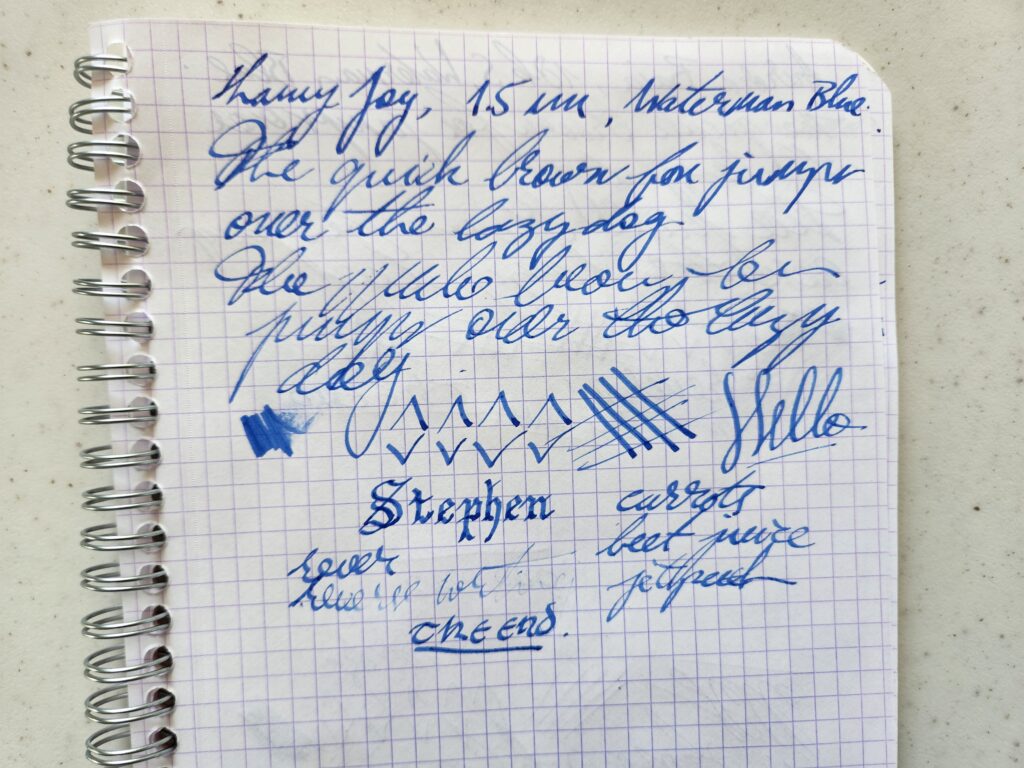 Lamy Joy, 1.5 mm, Waterman Blue.
The quick brown fox jumps
over the lazy dog.
The quick brown fox
jumps over the lazy
dog
Hello
Stephen
carrots
beet juice
rever
reverse writing
cheers.